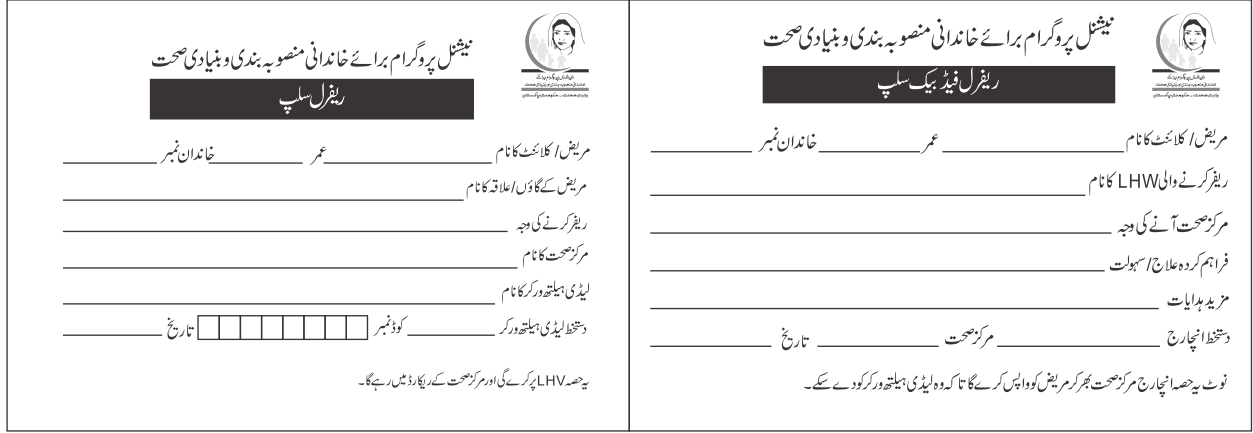 نیشنل پروگرام برائے خاندانی منصوبہ بندی و بنیادی صحت
ریفرل فیڈ بیک سلپ
مریض/ کلائنٹ کا نام عمر خاندان نمبر
ریفر کرنے والی LHW کا نام
مرکز صحت آنے کی وجہ
فراہم کردہ علاج/ سہولت
مزید ہدایات
دستخط انچارج مرکز صحت تاریخ
نوٹ یہ حصہ انچارج مرکز صحت بھر کر مریض کو واپس کرے گا تا کہ وہ لیڈی ہیلتھ ورکر کو دے سکے۔
نیشنل پروگرام برائے خاندانی منصوبہ بندی و بنیادی صحت
ریفرل سلپ
مریض/ کلائنٹ کا نام عمر خاندان نمبر
مریض کے گاؤں/علاقہ کا نام
ریفر کرنے کی وجہ
مرکز صحت کا نام
لیڈی ہیلتھ ورکر کا نام
دستخط لیڈی ہیلتھ ورکر کوڈ نمبر تاریخ
یہ حصہ LHV پر کرے گی اور مرکز صحت کے ریکارڈ میں رہے گا۔